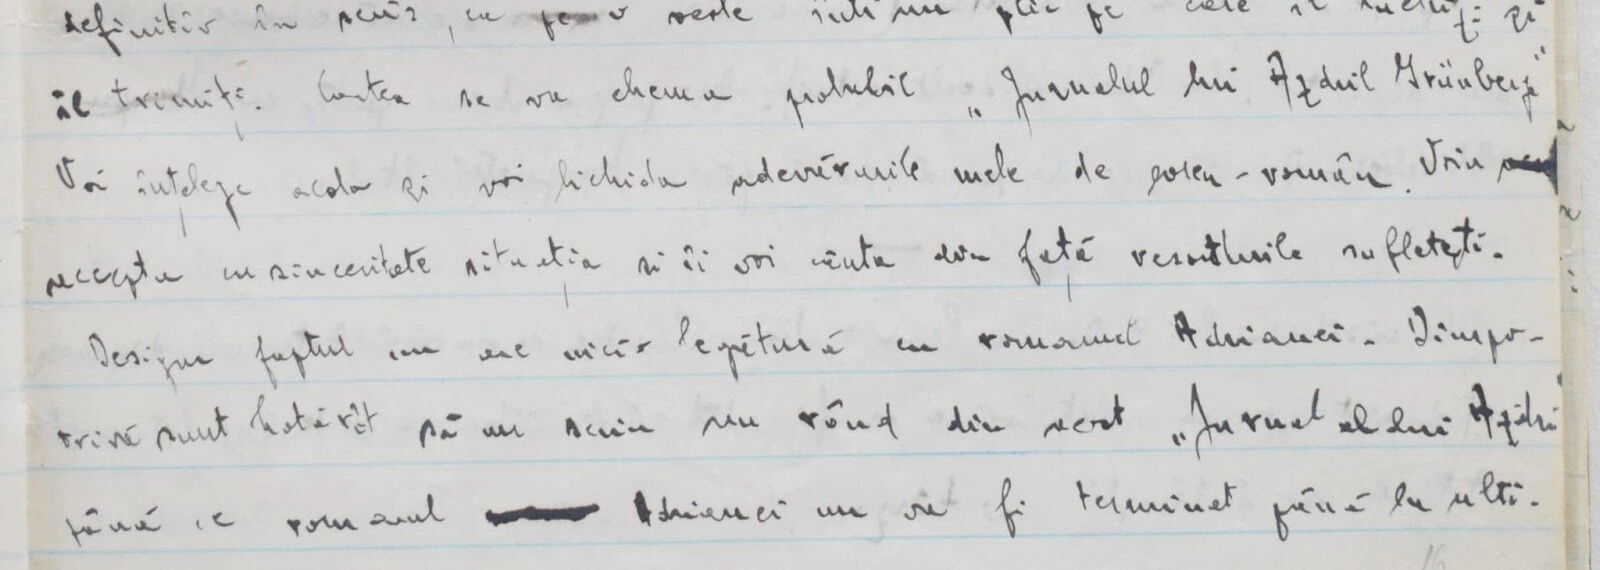 definitiv în scris, ca pe o veste într'un plic pe care îl închizi și
îl trimiți. Cartea se va chema probabil „Jurnalul lui Azdril Grünberg"
Voi înțelege acolo și voi lichida adevărurile mele de evreu-român. Voiu
accepta cu sinceritate situația și îi voi căuta din față resorturile sufletești.
Desigur faptul nu are nicio legătură cu romanul Adrianei. Dimpo-
trivă sunt hotărît să nu scriu un rând din acest „Jurnal al lui
până ce romanul Adrianei nu va fi terminat până la ulti-